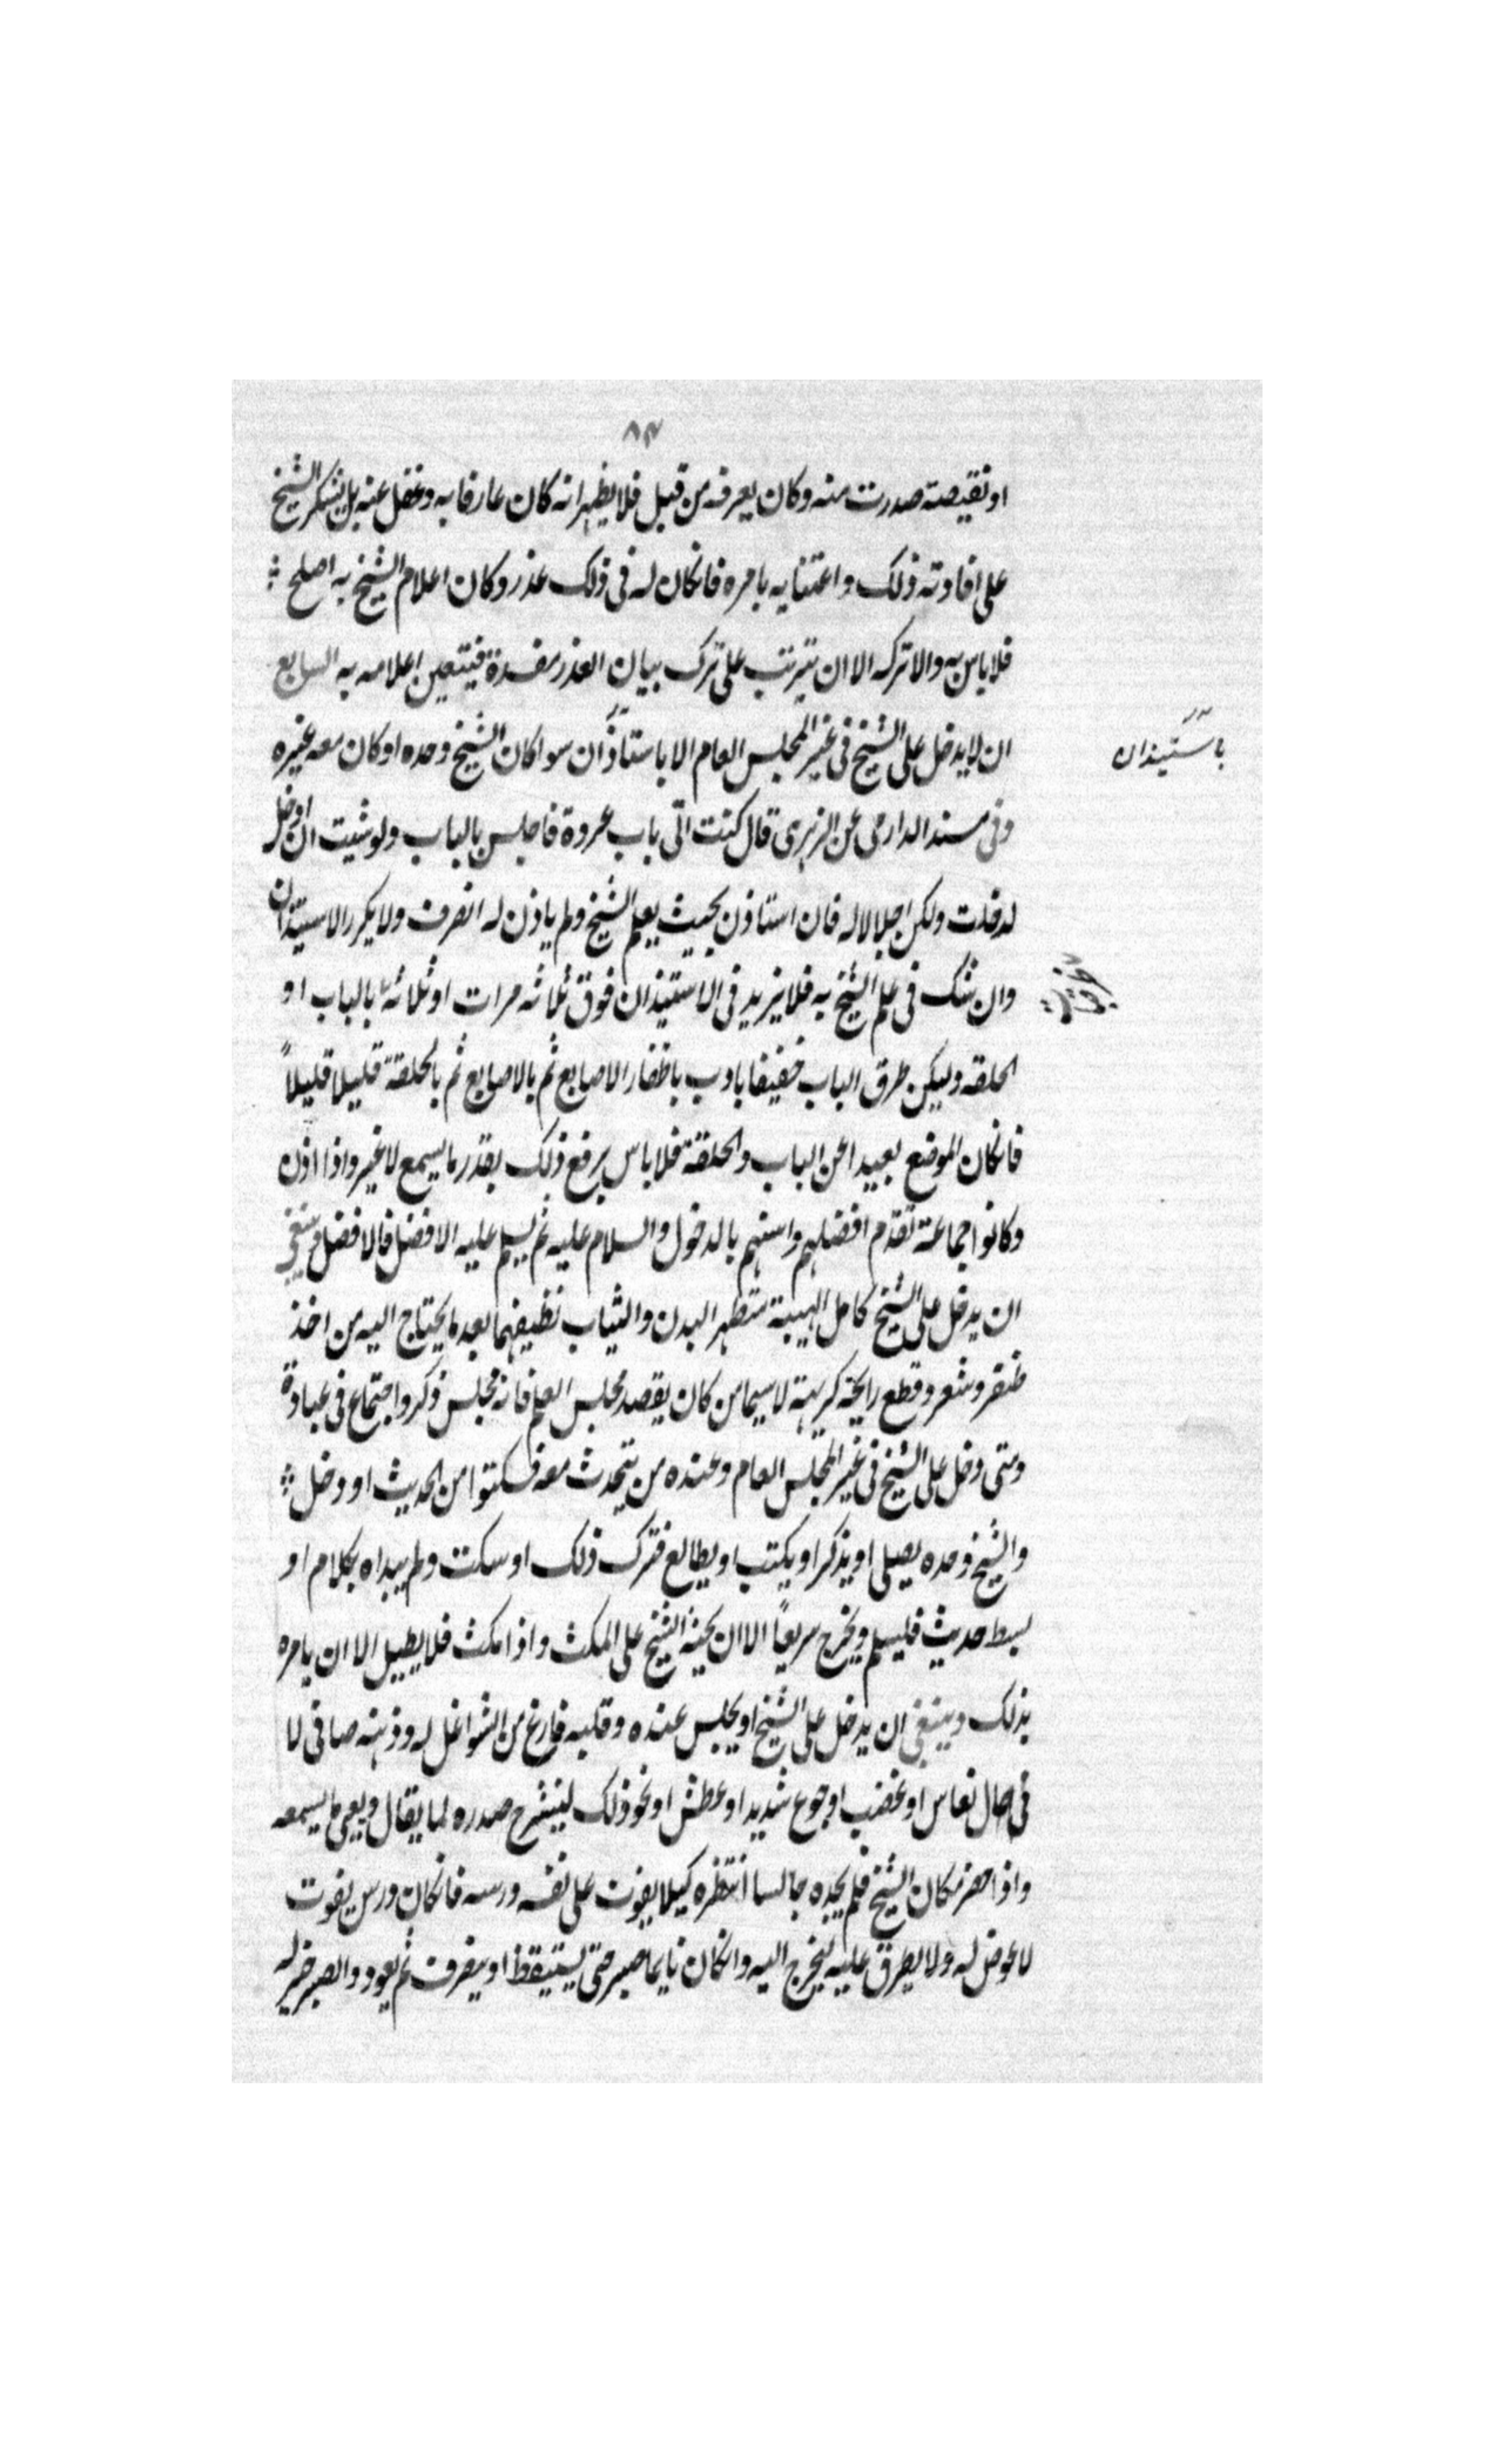 ٨٣
او نقيصة صدرت منه وكان يعرفه من قبل فلا يظهر انه كان عارفا به وغفل عنه بل يشكر الشيخ
على افادته ذلك واعتنايه بامره فانكان له فى ذلك عذر وكان اعلام الشيخ به اصلح
فلا باس به والا تركه الا ان يترتب على ترك بيان العذر مفسدة فيتعين اعلامه به السابع
ان لا يدخل على الشيخ فى غير المجلس العام الا باستاذان سوا كان الشيخ وحده او كان معه غيره
باستيذان
وفى مسند الدارمى عن الزهرى قال كنت اتى باب عروة فاجلس بالباب ولو شيت ان ادخل
لدخلت ولكن اجلالا له فان استاذن بحيث يعلم الشيخ ولم ياذن له انصرف ولا يكرر الاستيذان
وان شك فى علم الشيخ به فلا يزيد فى الاستيذان فوق ثلاثه مرات او ثلاثه بالباب او
الحلقه وليكن طرق الباب خفيفا بادب باظفار الاصابع ثم بالاصابع ثم بالحلقة قليلا قليلاً
فانكان الموضع بعيدا عن الباب والحلقة فلا باس برفع ذلك بقدر ما يسمع لا غير واذا اذن
وكانوا جماعة تقدم افضلهم واسنهم بالدخول والسلام عليه ثم يسلم عليه الافضل فالافضل وينبغى
ان يدخل على الشيخ كامل الهيبة متطهر البدن والثياب نظيفهما بعد ما يحتاج اليه من اخذ
ظفر وشعر وقطع رايحة كريهة لا سيما من كان يقصد مجلس العلم فانه مجلس ذكر واجتماع فى عبادة
ومتى دخل على الشيخ فى غير المجلس العام وعنده من يتحدث معه فسكتوا من الحديث او دخل
والشيخ وحده يصلى او يذكر او يكتب او يطالع فترك ذلك او سكت ولم يبداه بكلام او
بسط حديث فليسلم ويخرج سريعاً الا ان يحثه الشيخ على المكث واذا مكث فلا يطيل الا ان يامره
بذلك وينبغى ان يدخل على الشيخ او يجلس عنده وقلبه فارغ من الشواغل له وذهنه صافى لا
فى حال نعاس او غضب او جوع شديد او عطش او نحو ذلك لينشرح صدره لما يقال ويعى ما يسمعه
واذا حضر مكان الشيخ فلم يجده جالسا انتظره كيلا يفوت على نفسه درسه فانكان درس يفوت
لا عوض له ولا يطرق عليه ليخرج اليه وانكان نايما صبر حتى يستيقظ او ينصرف ثم يعود والصبر خير له